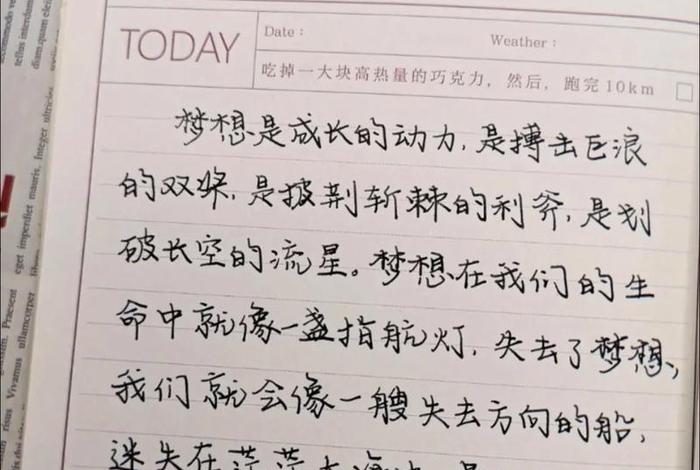 TODAY
Date：
Weather：
吃掉一大块高热量的巧克力，然后，跑完10km
梦想是成长的动力，是搏击巨浪
的双桨，是披荆斩棘的利斧，是划
破长空的流星。梦想在我们的生
命中就像一盏指航灯，失去了梦想，
我们就会像一艘失去方向的船，
迷失在茫茫大海
eget imperdiet mauris. Integer ultricies
risus Vivamus ullamcorper
Praesent